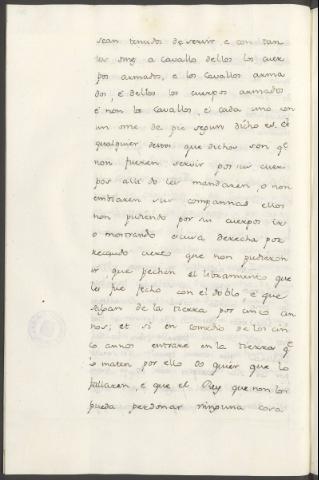 sean tenudos de servir e con tan
tos omes a cavallo dellos los cuer
pos armados, e los cavallos arma
dos é dellos los cuerpos armados
é non los cavallos, é cada uno con
un ome de pie segun dicho es. é
qualquier destos que dichos son qe
non fueren servir por sus cuer
pos alli do les mandaren, o non
embiaren sus compannas ellos
non pudiendo por su cuerpos ir
o mostrando escusa derecha por
recaudo cierto que non pudieron
ir, que pechen el libramiento que
les fue fecho con el doblo, e que
salgan de la tierra por cinco an
nos; et si en comedio de los cin
co annos entrare en la tierra qe
lo maten por ello do quier que lo
fallaren, e que el Rey que non los
pueda perdonar ninguna cosa